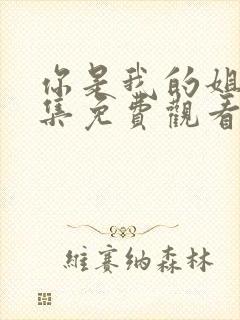 你是我的姐
集免費觀看
維賽纳森林